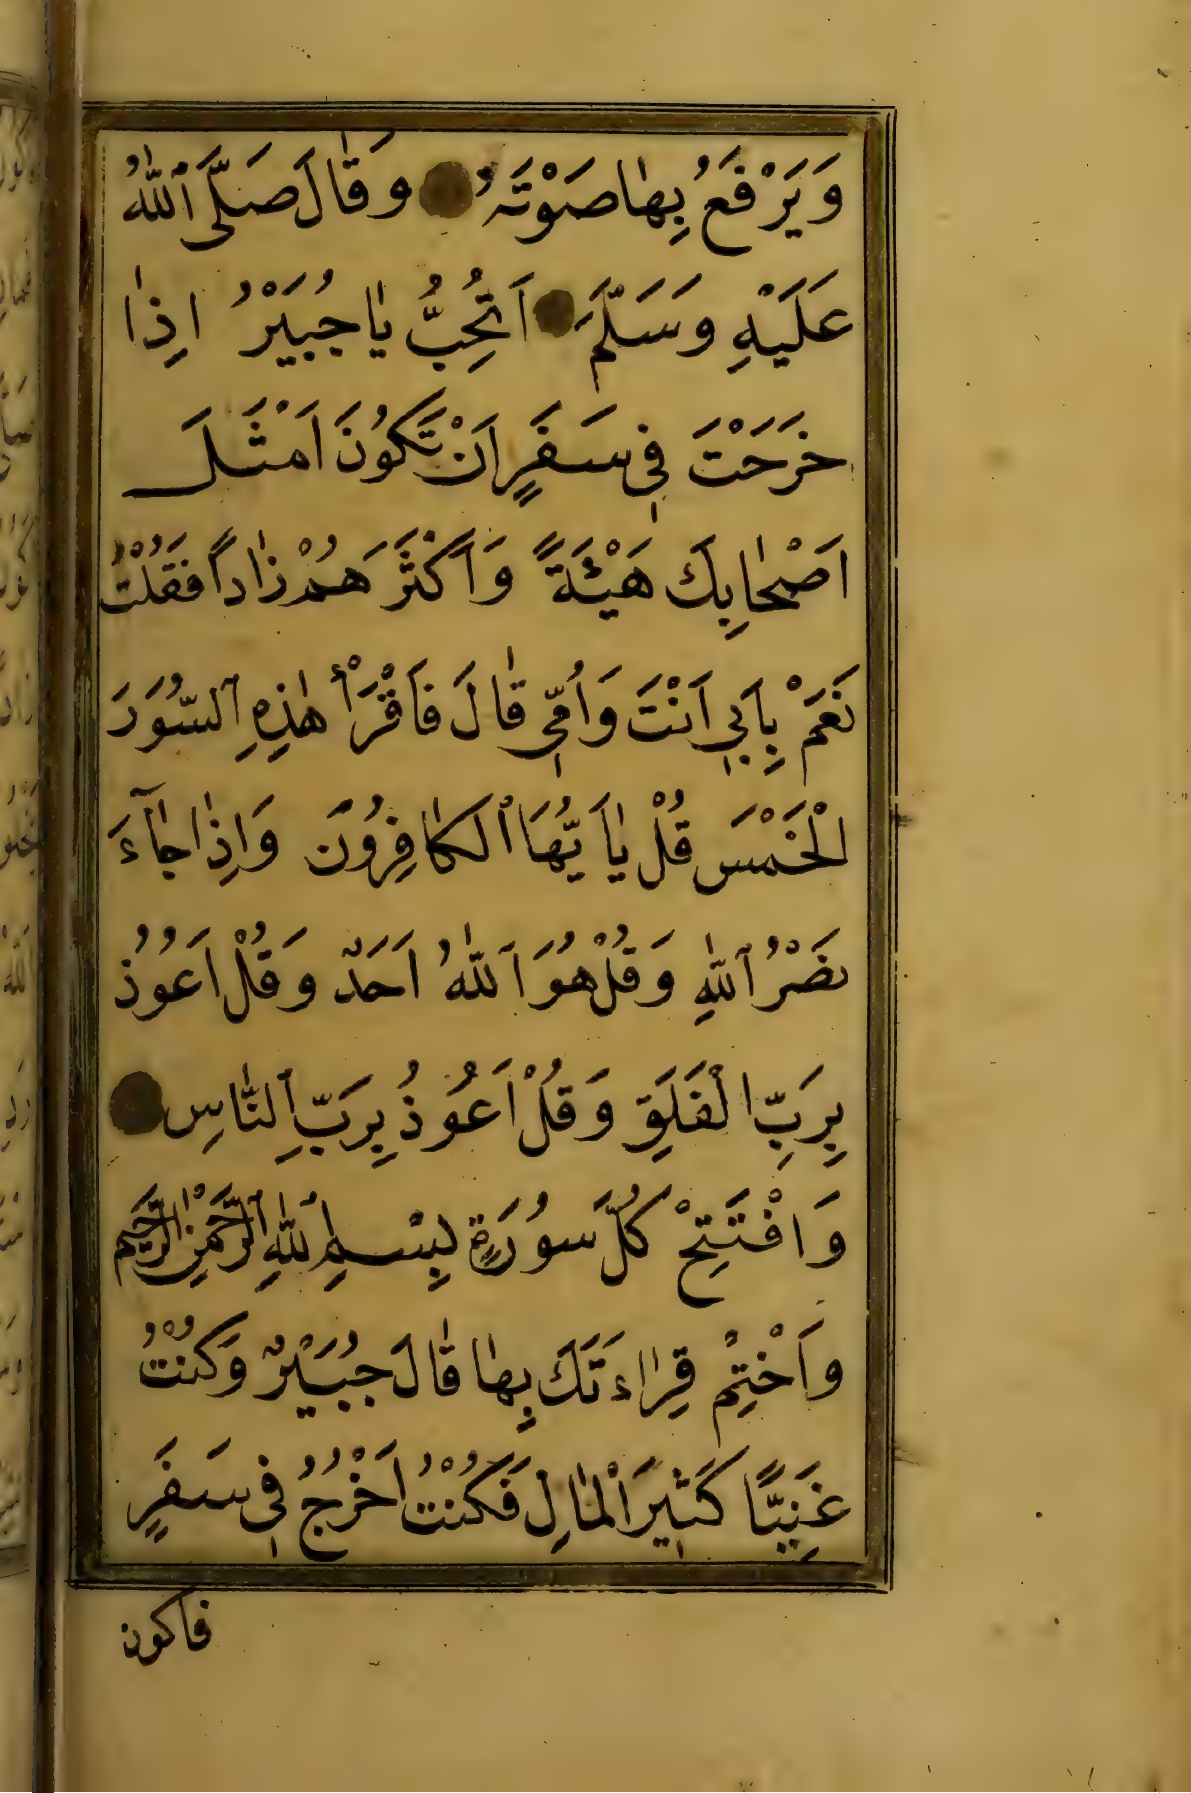 وَيَرْفَعُ بِهٰا صَوْتَهُ وَقٰالَ صَلَّى ٱللّٰهُ
عَلَيْهِ وَسَلَّمَ اَتُحِبُّ يٰا جُبَيْرُ اِذٰا
خَرَجْتَ فِي سَفَرٍ اَنْ تَكُونَ اَمْثَلَ
اَصْحٰابِكَ هَيْئَةً وَاَكْثَرَ هُمْ زٰاداً فَقُلْتُ
نَعَمْ بِاَبِي اَنْتَ وَاُمِّي قٰالَ فَاقْرَأْ هٰذِهِ ٱلسُّوَرَ
الْخَمْسَ قُلْ يٰا اَيُّهَا ٱلْكٰافِرُونَ وَاِذٰا جٰآءَ
نَصْرُ ٱللّٰهِ وَقُلْ هُوَ ٱللّٰهُ اَحَدٌ وَقُلْ اَعُوذُ
بِرَبِّ الْفَلَقِ وَقُلْ اَعُوذُ بِرَبِّ ٱلنّٰاسِ
وَافْتَتِحْ كُلَّ سُورَةٍ بِسْمِ ٱللّٰهِ ٱلرَّحْمٰنِ ٱلرَّحِيمِ
وَاَخْتِمْ قِرٰاءَتَكَ بِهٰا قٰالَ جُبَيْرٌ وَكُنْتُ
غَنِيًّا كَثِيرَ ٱلْمٰالِ فَكُنْتُ اَخْرُجُ فِي سَفَرٍ
فاكون